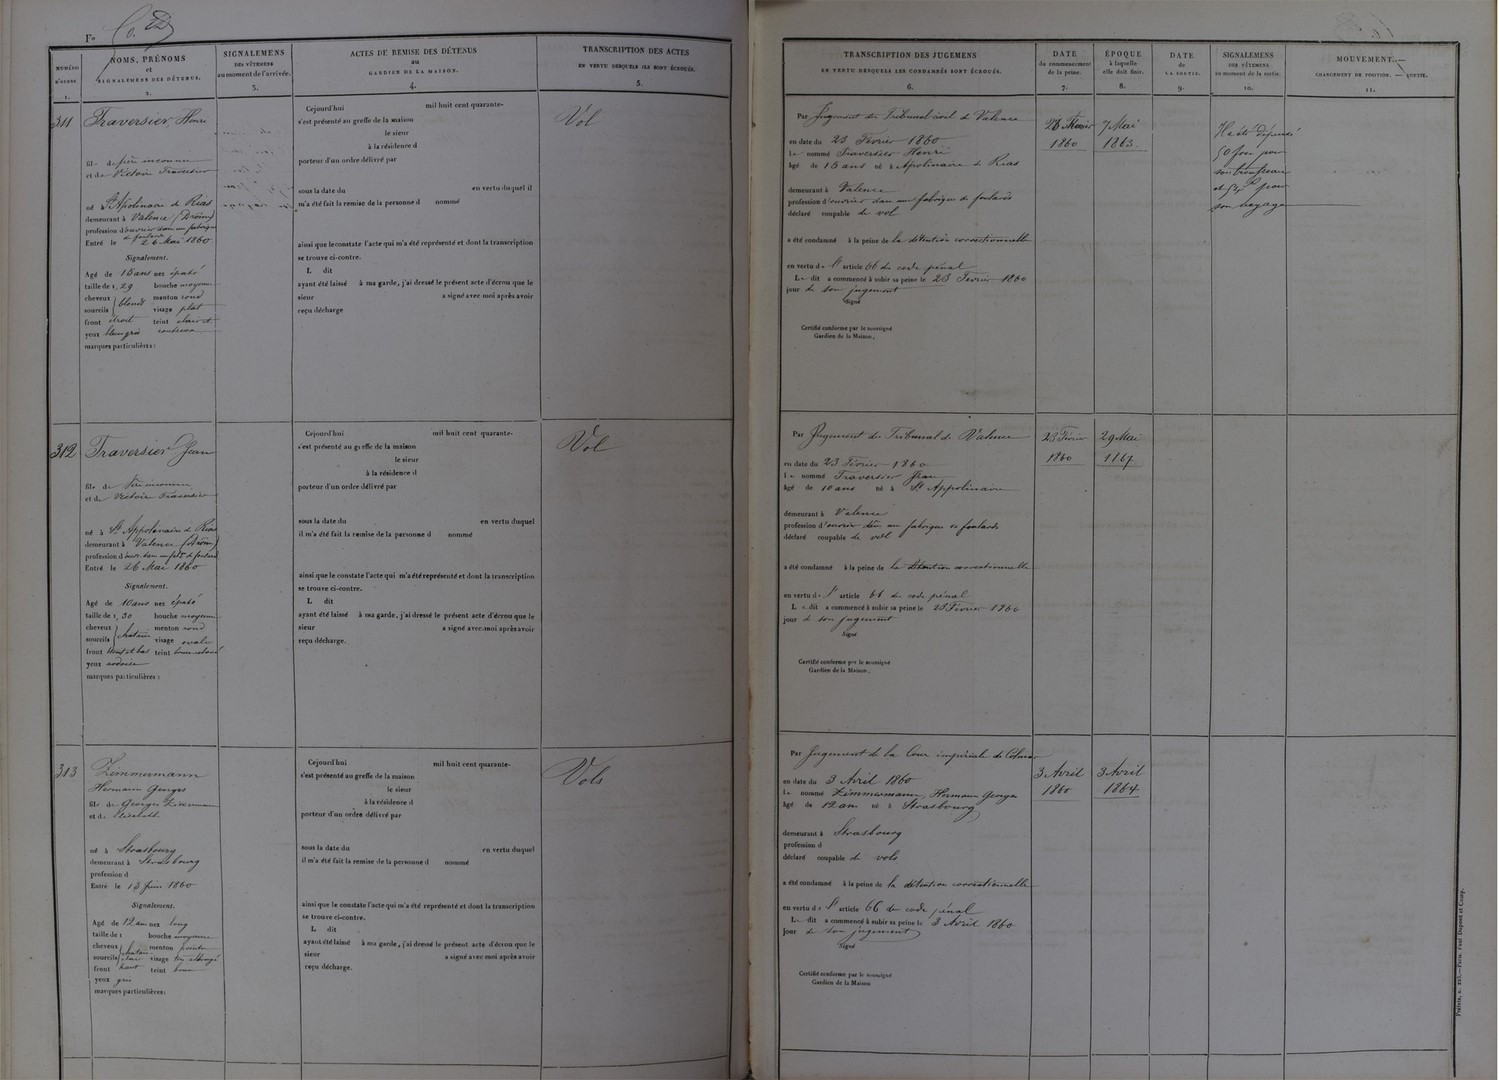 Fo
NUMÉRO
D'ORDRE
1.
NOMS, PRÉNOMS
et
SIGNALEMENS DES DÉTENUS.
2.
SIGNALEMENS
DES VÊTEMENS
au moment de l'arrivée.
3.
ACTES DE REMISE DES DÉTENUS
au
GARDIEN DE LA MAISON.
4.
TRANSCRIPTION DES ACTES
EN VERTU DESQUELS ILS SONT ÉCROUÉS.
5.
311
Traversier, Henri
fils de père inconnu
et de Victoire Traversier
né à St Apolinaire de Rias
demeurant à Valence (Drôme)
profession d'ouvrier dans une fabrique
de foulards
Entré le 26 Mai 1860
Signalement.
Agé de 15 ans nez épaté
taille de 1, 29 bouche moyenne
cheveux blonds menton rond
sourcils visage plat
front étroit teint clair et
yeux bleu gris
marques particulières :
Cejourd'hui mil huit cent quarante-
s'est présenté au greffe de la maison
le sieur
à la résidence d
porteur d'un ordre délivré par
sous la date du en vertu duquel il
m'a été fait la remise de la personne d nommé
ainsi que le constate l'acte qui m'a été représenté et dont la transcription
se trouve ci-contre.
L dit
ayant été laissé à ma garde, j'ai dressé le présent acte d'écrou que le
sieur a signé avec moi après avoir
reçu décharge
Vol
312
Traversier Jean
fils de Père inconnu
et de Victoire Traversier
né à St Appolinaire de Rias
demeurant à Valence (Drôme)
profession d ouvr. dans une fabr. de foulard
Entré le 26 Mai 1860
Signalement.
Agé de 10 ans nez épaté
taille de 1, 30 bouche moyenne
cheveux châtain menton rond
sourcils visage ovale
front haut et bas teint
yeux ardoise
marques particulières :
Cejourd'hui mil huit cent quarante-
s'est présenté au greffe de la maison
le sieur
à la résidence d
porteur d'un ordre délivré par
sous la date du en vertu duquel
il m'a été fait la remise de la personne d nommé
ainsi que le constate l'acte qui m'a été représenté et dont la transcription
se trouve ci-contre.
L dit
ayant été laissé à ma garde, j'ai dressé le présent acte d'écrou que le
sieur a signé avec moi après avoir
reçu décharge.
Vol
313
Zimmermann
Hermann Georges
fils de Georges Zimmermann
et de Elisabeth
né à Strasbourg
demeurant à Strasbourg
profession d
Entré le 13 Juin 1860
Signalement.
Agé de 12 ans nez long
taille de 1 bouche moyenne
cheveux châtain menton pointu
sourcils clair visage allongé
front haut teint
yeux gris
marques particulières:
Cejourd'hui mil huit cent quarante-
s'est présenté au greffe de la maison
le sieur
à la résidence d
porteur d'un ordre délivré par
sous la date du en vertu duquel
il m'a été fait la remise de la personne d nommé
ainsi que le constate l'acte qui m'a été représenté et dont la transcription
se trouve ci-contre.
L dit
ayant été laissé à ma garde, j'ai dressé le présent acte d'écrou que le
sieur a signé avec moi après avoir
reçu décharge.
Vols
TRANSCRIPTION DES JUGEMENS
EN VERTU DESQUELS LES CONDAMNÉS SONT ÉCROUÉS.
6.
DATE
du commencement
de la peine.
7.
ÉPOQUE
à laquelle
elle doit finir.
8.
DATE
de
LA SORTIE.
9.
SIGNALEMENS
DES VÊTEMENS
au moment de la sortie.
10.
MOUVEMENT.
CHANGEMENT DE POSITION. — SORTIE.
11.
Par Jugement du Tribunal civil de Valence
en date du 23 Février 1860
le nommé Traversier Henri
âgé de 15 ans né à Apolinaire de Rias
demeurant à Valence
profession d'ouvrier dans une fabrique de foulards
déclaré coupable de vol
a été condamné à la peine de la détention correctionnelle
en vertu de l' article 66 du code pénal
Le dit a commencé à subir sa peine le 23 Février 1860
jour de son jugement
Signé
Certifié conforme par le soussigné
Gardien de la Maison,
23 Février
1860
7 Mai
1863
Il a été dépensé
pour
son trousseau
et pour
son voyage
Par Jugement du Tribunal de Valence
en date du 23 Février 1860
le nommé Traversier Jean
âgé de 10 ans né à St Appolinaire
demeurant à Valence
profession d'ouvrier dans une fabrique de foulards
déclaré coupable de vol
a été condamné à la peine de la détention correctionnelle
en vertu de l' article 66 du code pénal
Le dit a commencé à subir sa peine le 23 Février 1860
jour de son jugement
Signé
Certifié conforme par le soussigné
Gardien de la Maison,
23 Février
1860
29 Mai
1867
Par Jugement de la Cour impériale de Colmar
en date du 3 Avril 1860
le nommé Zimmermann, Hermann Georges
âgé de 12 ans né à Strasbourg
demeurant à Strasbourg
profession d
déclaré coupable de vols
a été condamné à la peine de la détention correctionnelle
en vertu de l' article 66 du code pénal
Le dit a commencé à subir sa peine le 3 Avril 1860
jour de son jugement
Signé
Certifié conforme par le soussigné
Gardien de la Maison
3 Avril
1860
3 Avril
1864
Paris. Paul Dupont et Comp.